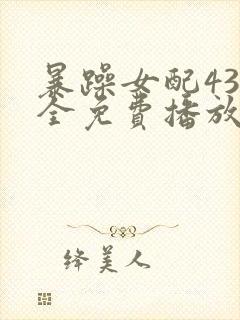 暴躁女配43
全免費播放
绛美人